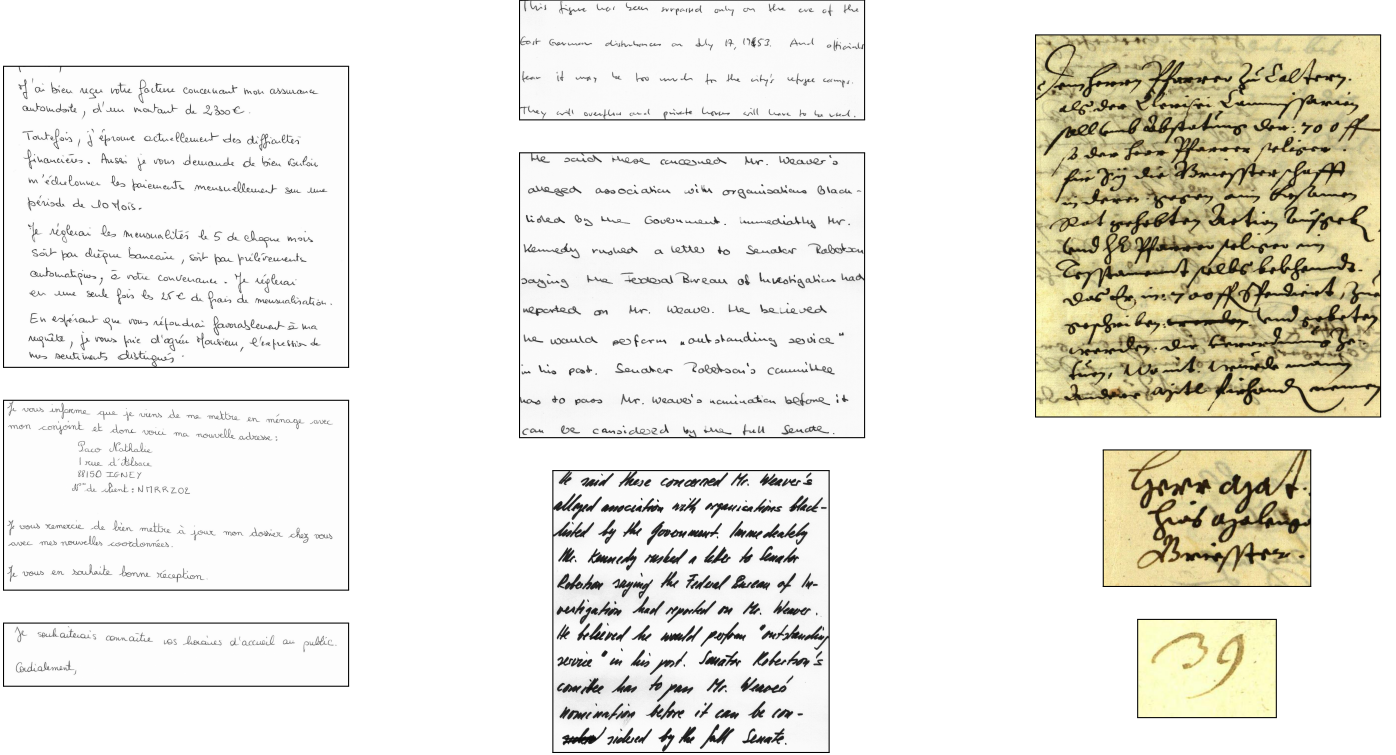 J'ai bien reçu votre facture concernant mon assurance
automobile, d'un montant de 2300€.
Toutefois, j'éprouve actuellement des difficultés
financières. Aussi je vous demande de bien vouloir
m'échelonner les paiements mensuellement sur une
période de 10 Mois.
Je règlerai les mensualités le 5 de chaque mois
soit par chèque bancaire, soit par prélèvements
automatiques, à votre convenance. Je règlerai
en une seule fois les 25€ de frais de mensualisation.
En espérant que vous répondrai favorablement à ma
requête, je vous prie d'agréer Monsieur, l'expression de
mes sentiments distingués.
Je vous informe que je viens de me mettre en ménage avec
mon conjoint et donc voici ma nouvelle adresse:
Paco Nathalie
1 rue d'Alsace
88150 IGNEY
N° de client: NMRRZ02
Je vous remercie de bien mettre à jour mon dossier chez vous
avec mes nouvelles coordonnées.
Je vous en souhaite bonne réception.
Je souhaiterais connaître vos horaires d'accueil au public.
Cordialement,
This figure has been surpassed only on the eve of the
East German disturbances on July 17, 1953. And officials
fear it may be too much for the city's refugee camps.
They will overflow and private homes will have to be used.
He said these concerned Mr. Weaver's
alleged association with organisations black-
listed by the Government. Immediatly Mr.
Kennedy rushed a letter to Senator Robertson
saying the Federal Bureau of Investigation had
reported on Mr. Weaver. He believed
he would perform "outstanding service"
in his post. Senator Robertson's committee
has to pass Mr. Weaver's nomination before it
can be considered by the full Senate.
He said these concerned Mr. Weaver's
alleged association with organisations black-
listed by the Government. Immediately
Mr. Kennedy rushed a letter to Senator
Robertson saying the Federal Bureau of In-
vestigation had reported on Mr. Weaver.
He believed he would perform "outstanding
service" in his post. Senator Robertson's
comittee has to pass Mr. Weaver's
nomination before it can be con-
sidered by the full Senate.
herrn Pfarrer zu Caltern.
als der Clerisei Commissarien
der 700 ff
so der herr Pfarrer seliger
für die Briesterschafft
in deren gegen
Rat gehebten Action
und Pfarrer seliger im
Testament selbs bekhendt.
das Er in 700 ff Spendiert,
geschriben worden und gebeten
werden, die
wurde mann
andere nemen
herr Mat-
hias
Briesster.
39